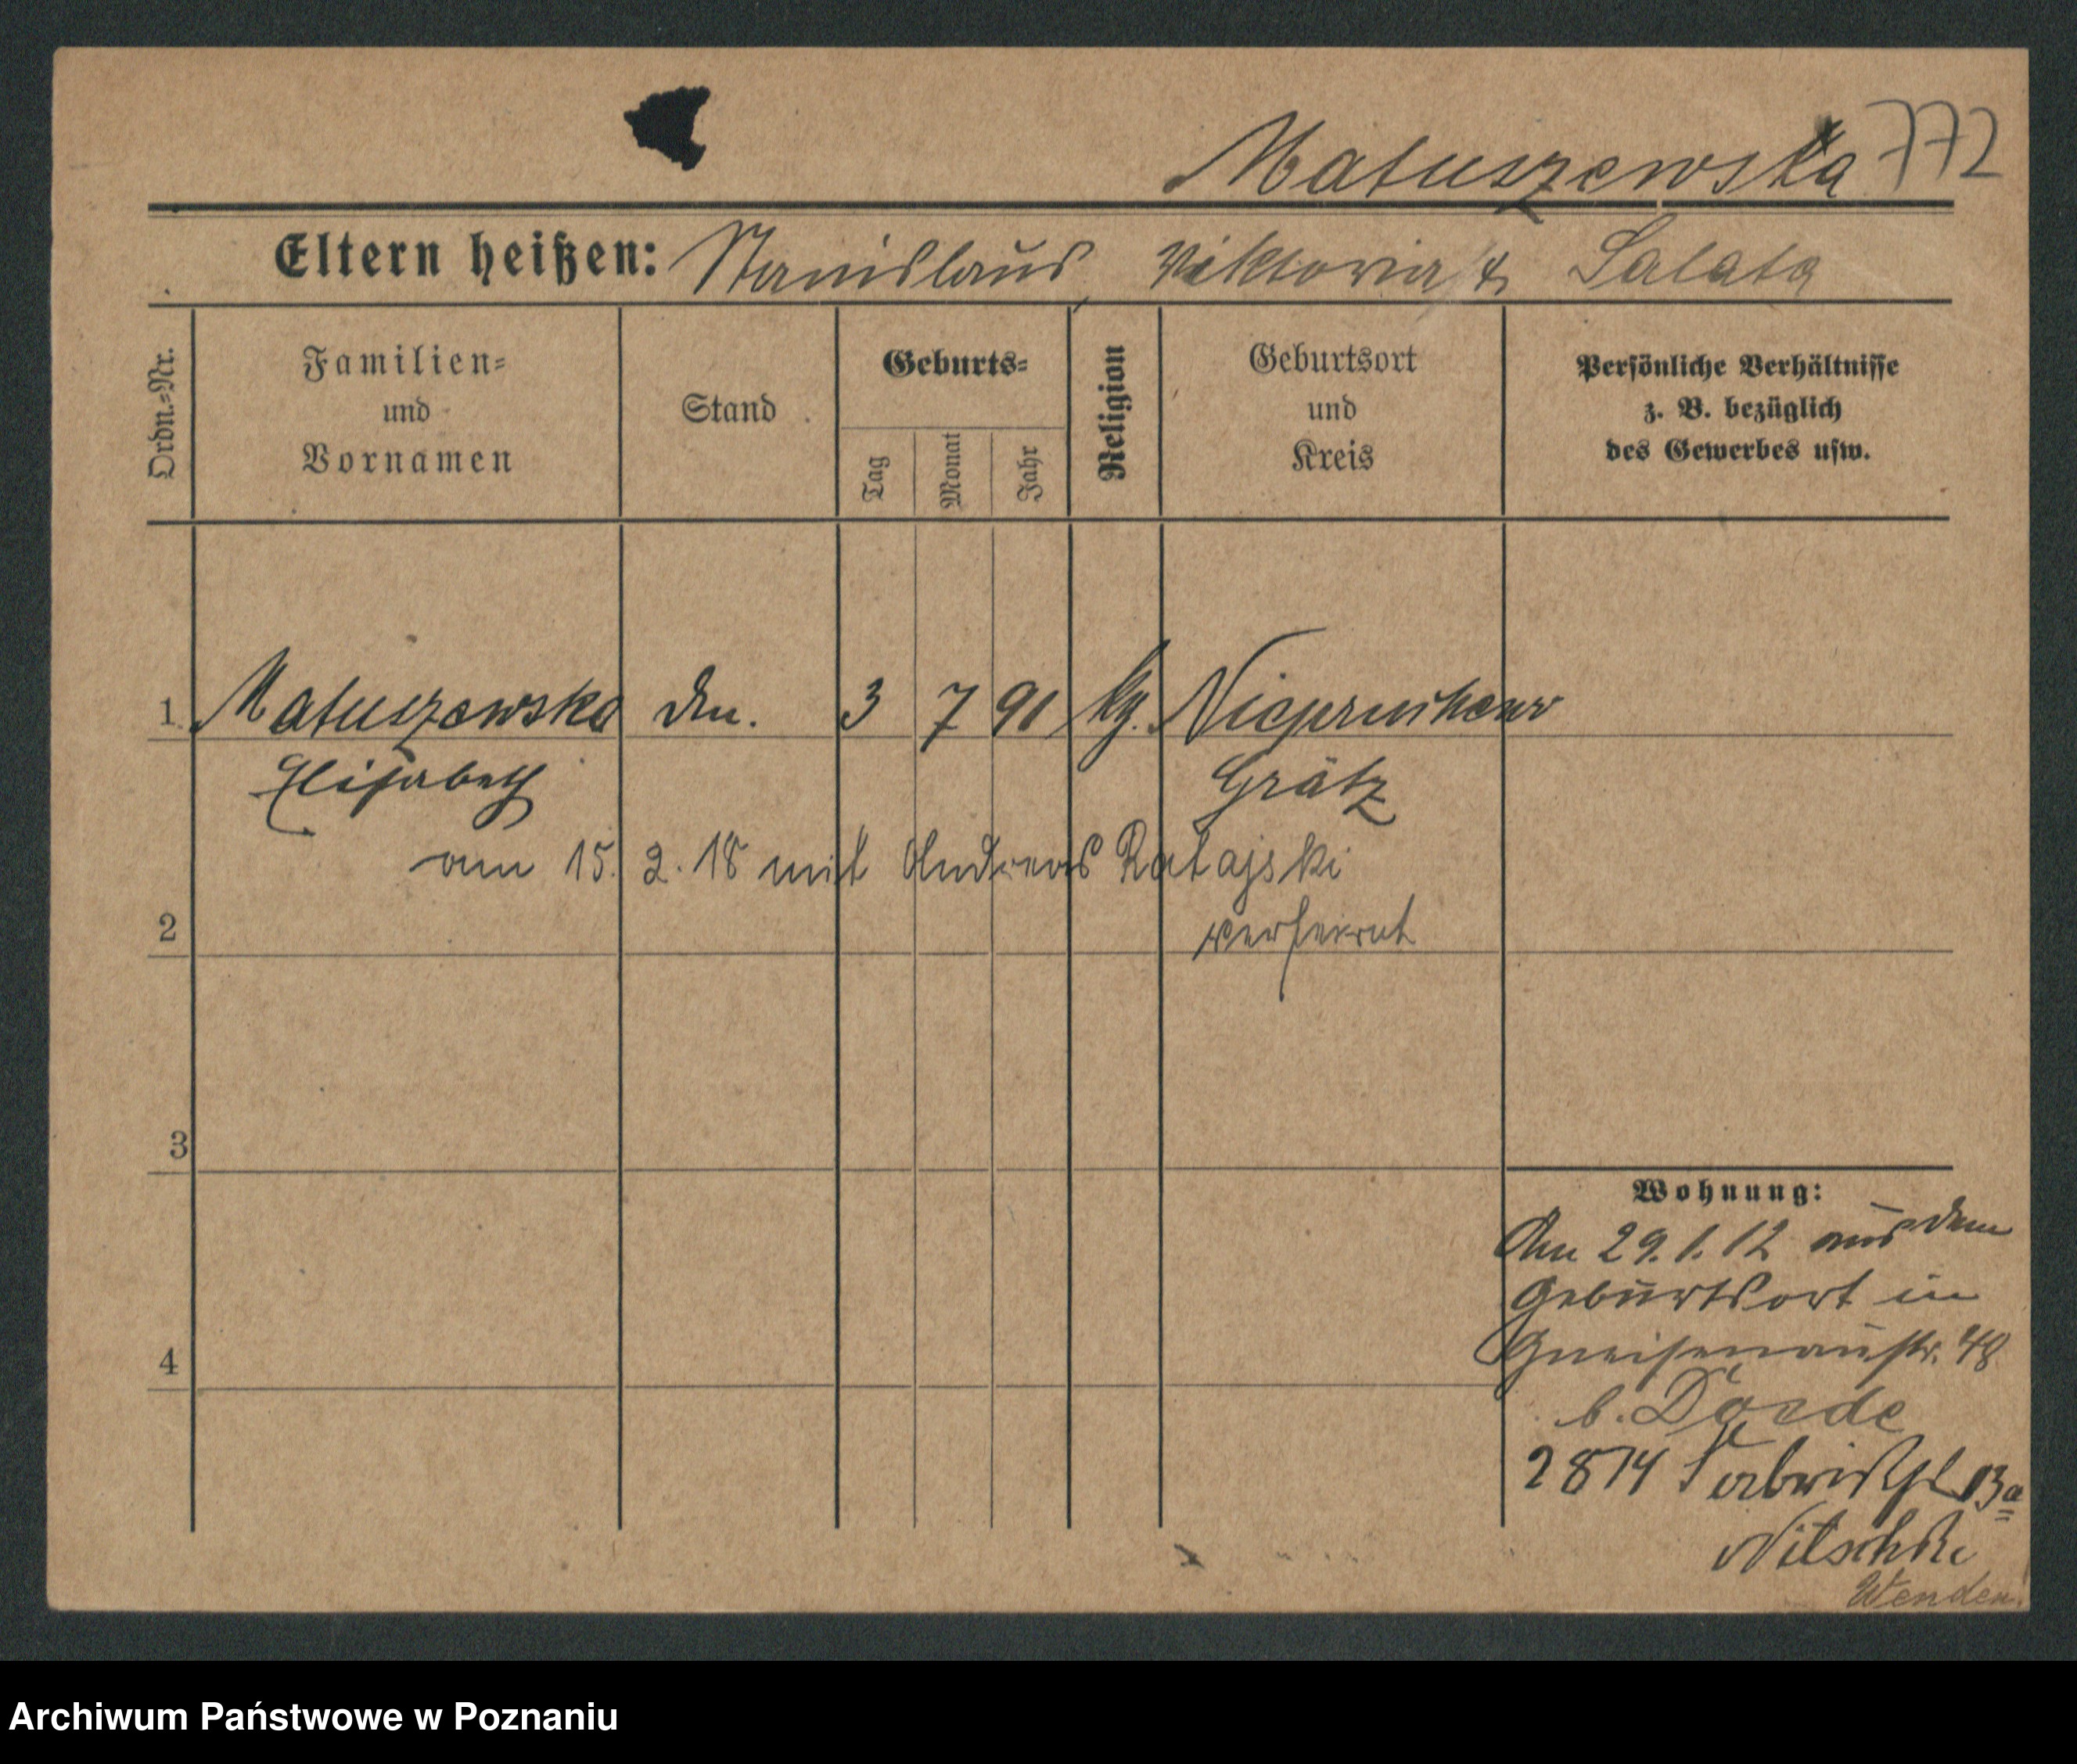 Matuszewska 772
Eltern heißen: Stanislaus, Viktoria Salata
Ordn.-Nr.
Familien-
und
Vornamen
Stand
Geburts-
Tag
Monat
Jahr
Religion
Geburtsort
und
Kreis
Persönliche Verhältnisse
z. B. bezüglich
des Gewerbes usw.
1 Matuszewska 3 7 91
Elisabeth Grätz
am 15. 2. 18 mit Andreas Ratajski
2 verheirat
3
4
Wohnung:
Am 29. 1. 12 aus dem
Geburtsort in
Gneisenaustr. 48
b.
13a
Nitschke
Wenden.
Archiwum Państwowe w Poznaniu